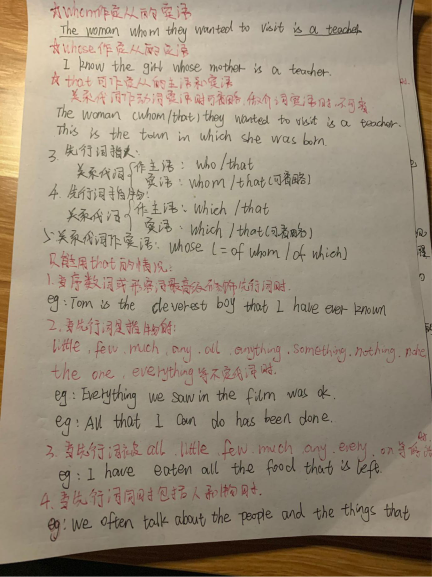 ☆whom作定从的宾语
The woman whom they wanted to visit is a teacher
☆whose作定从的定语
I know the girl whose mother is a teacher.
☆that可作定从的主语和宾语
关系代词作动词宾语时可省略,做介词宾语时不可省
The woman (whom/that) they wanted to visit is a teacher.
This is the town in which she was born.
3. 先行词指人:
关系代词{作主语: who/that
宾语: whom/that(可省略)
4. 先行词手指物:
关系代词{作主语: which/that
宾语: which/that(可省略)
5.关系代词作定语: whose (=of whom/of which)
只能用that的情况:
1.当序数词或形容词最高级修饰先行词时.
eg:Tom is the cleverest boy that I have ever known
2.当先行词是指物时:
little, few, much, any, all, anything, something, nothing, none
the one, everything等不定代词时.
eg: Everything we saw in the film was ok.
eg: All that I can do has been done.
3.当先行词被all, little, few, much, any, every, no等修饰
eg: I have eaten all the food that is left.
4.当先行词同时包括人和物时.
eg: we often talk about the people and the things that